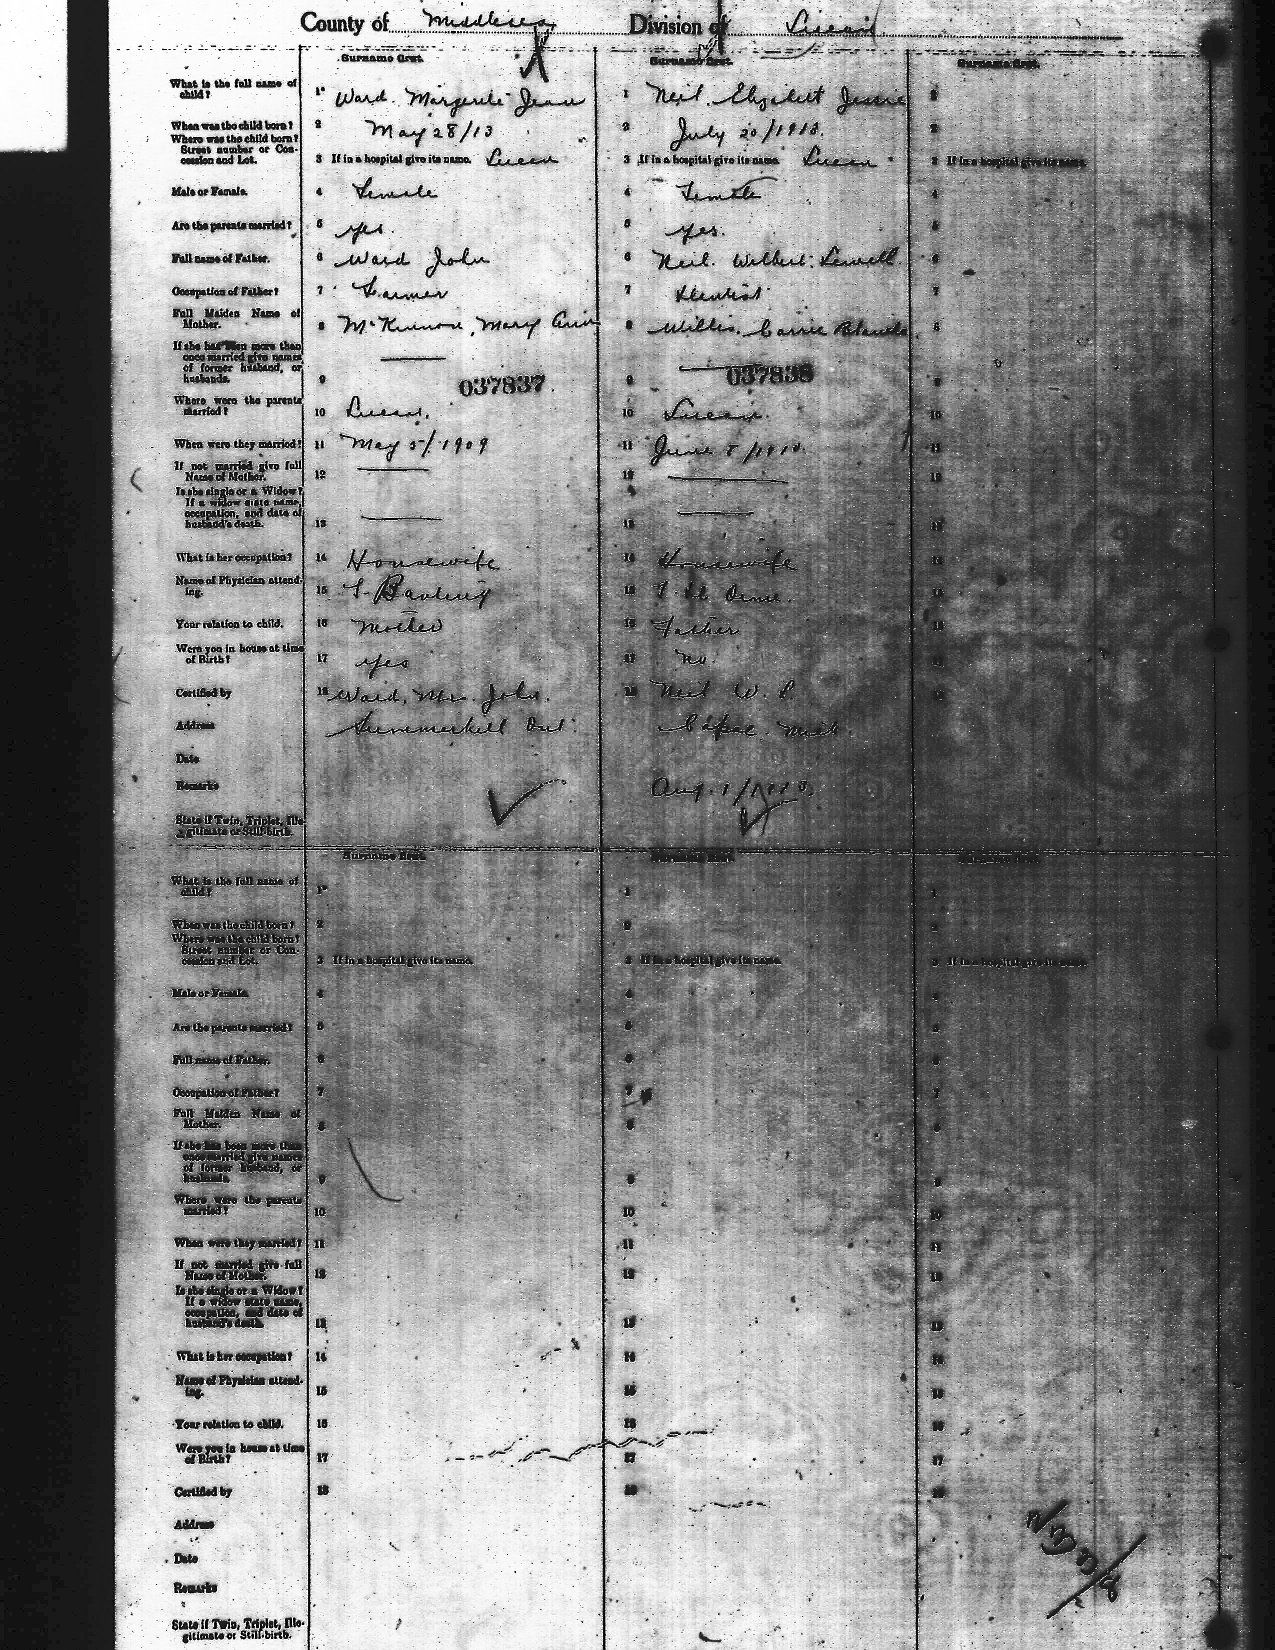 County of Middlesex Division of Lucan
Surname first. Surname first. Surname first.
What is the full name of
child? 1 Ward. Margerite Jean 1 Neil. Elizabeth Jessie 1
When was the child born? 2 May 28/13 2 July 20/1913. 2
Where was the child born?
Street number or Con-
cession and Lot. 3 If in a hospital give its name. Lucan 3 If in a hospital give its name. Lucan 3 If in a hospital give its name.
Male or Female. 4 Female 4 Female 4
Are the parents married? 5 yes. 5 yes. 5
Full name of Father. 6 Ward John 6 Neil. Wilbert. 6
Occupation of Father? 7 Farmer 7 Dentist 7
Full Maiden Name of
Mother. 8 Mary Ann 8 Willis. Carrie Blanche 8
If she has been more than
once married give names
of former husband, or
husbands. 9 037837 9 037838 9
Where were the parents
married? 10 Lucan. 10 Lucan. 10
When were they married? 11 May 5/1909 11 June 11
If not married give full
Name of Mother. 12 12 12
Is she single or a Widow?
If a widow state name,
occupation, and date of
husband's death. 13 13 13
What is her occupation? 14 Housewife 14 Housewife 14
Name of Physician attend-
ing. 15 Banting 15 15
Your relation to child. 16 Mother 16 Father 16
Were you in house at time
of Birth? 17 yes 17 no. 17
Certified by 18 Ward, Mrs. John. 18 Neil W. L. 18
Address Summerhill Ont. Capac. Mich.
Date
Remarks Aug. 1/1913.
State if Twin, Triplet, Ille-
gitimate or Still-birth.
Surname first. Surname first. Surname first.
What is the full name of
child? 1 1 1
When was the child born? 2 2 2
Where was the child born?
Street number or Con-
cession and Lot. 3 If in a hospital give its name. 3 If in a hospital give its name. 3 If in a hospital give its name.
Male or Female. 4 4 4
Are the parents married? 5 5 5
Full name of Father. 6 6 6
Occupation of Father? 7 7 7
Full Maiden Name of
Mother. 8 8 8
If she has been more than
once married give names
of former husband, or
husbands. 9 9 9
Where were the parents
married? 10 10 10
When were they married? 11 11 11
If not married give full
Name of Mother. 12 12 12
Is she single or a Widow?
If a widow state name,
occupation, and date of
husband's death. 13 13 13
What is her occupation? 14 14 14
Name of Physician attend-
ing. 15 15 15
Your relation to child. 16 16 16
Were you in house at time
of Birth? 17 17 17
Certified by 18 18 18
Address
Date
Remarks
State if Twin, Triplet, Ille-
gitimate or Still-birth.